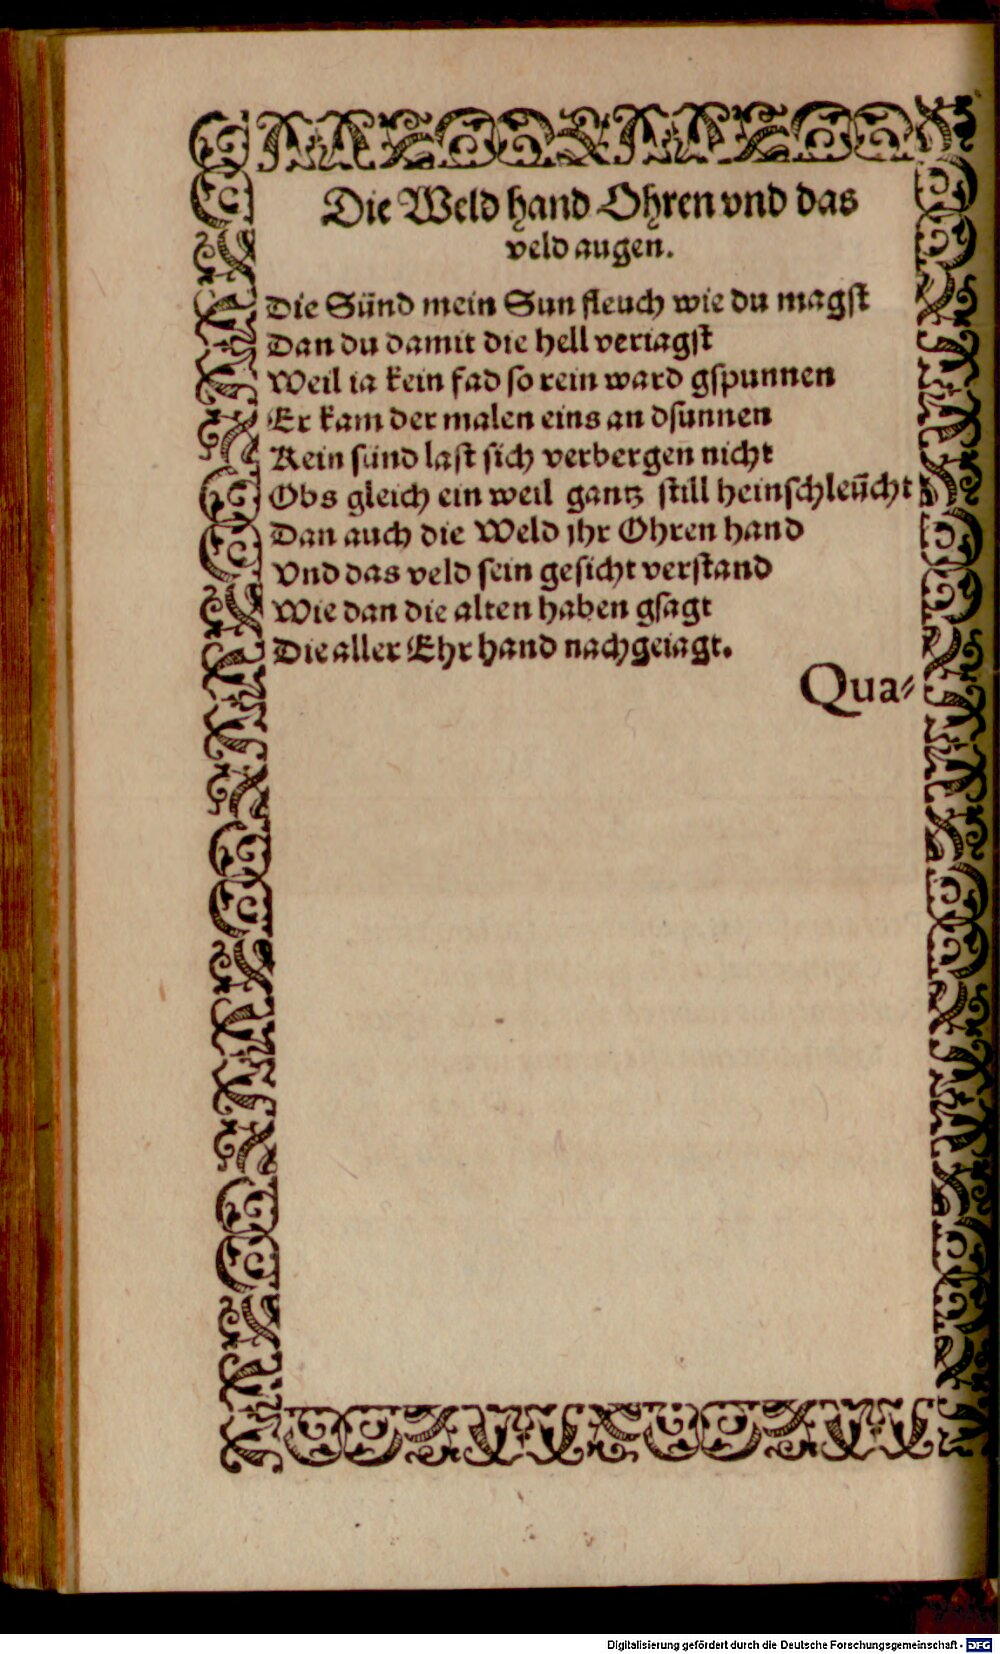 Die Weld hand Ohren vnd das
veld augen.
Die Sünd mein Sun fleuch wie du magst
Dan du damit die hell veriagst
Weil ia kein fad so rein ward gspunnen
Er kam der malen eins an dsunnen
Kein sünd last sich verbergen nicht
Obs gleich ein weil gantz still heinschleücht
Dan auch die Weld jhr Ohren hand
Vnd das veld sein gesicht verstand
Wie dan die alten haben gsagt
Die aller Ehr hand nachgeiagt.
Qua⸗
Digitalisierung gefördert durch die Deutsche Forschungsgemeinschaft - DFG